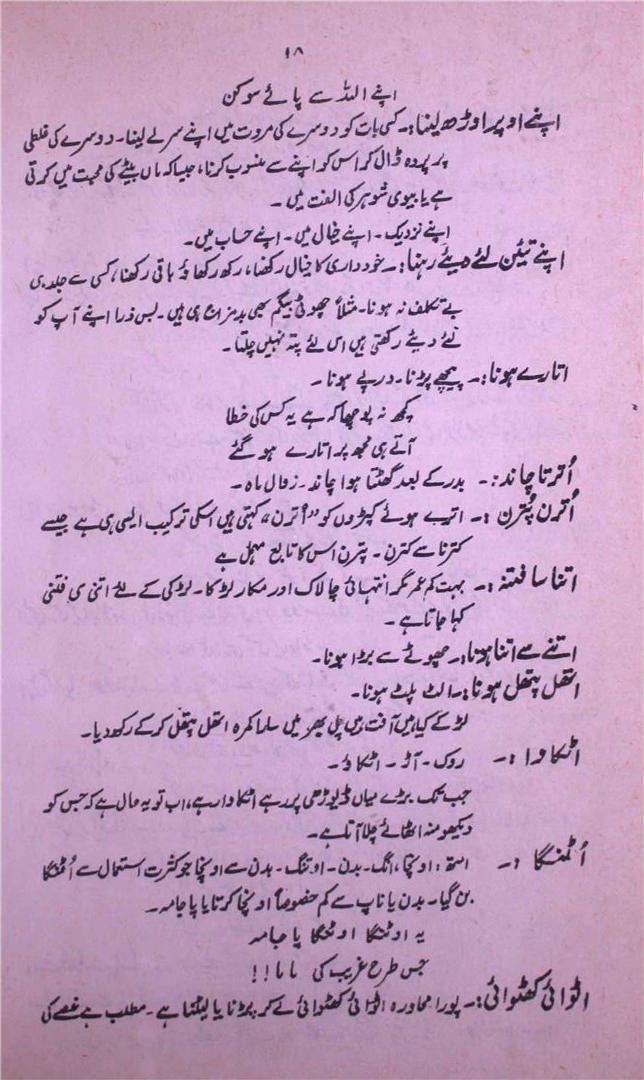 ۱۸
اپنے اللہ سے پائے سوکن
اپنے اوپر اوڑھ لینا:۔ کسی بات کو دوسرے کی مروت میں اپنے سر لے لینا۔ دوسرے کی غلطی
پر پردہ ڈال کر اس کو اپنے سے منسوب کرنا، جیسا کہ ماں بیٹے کی محبت میں کرتی
ہے یا بیوی شوہر کی الفت میں۔
اپنے نزدیک۔ اپنے خیال میں۔ اپنے حساب میں۔
اپنے تئیں لئے دیئے رہنا:۔ خودداری کا خیال رکھنا، رکھ رکھاؤ باقی رکھنا، کسی سے جلد ہی
بے تکلف نہ ہونا۔ مثلاً چھوٹی بیگم بھی بدمزاج ہی ہیں۔ بس ذرا اپنے آپ کو
لئے دیئے رکھتی ہیں اس لئے پتہ نہیں چلتا۔
اتارے ہونا:۔ پیچھے پڑنا۔ درپے ہونا۔
کچھ نہ پوچھا کہ ہے یہ کس کی خطا
آتے ہی مجھ پر اتارے ہو گئے
اُترتا چاند:۔ بدر کے بعد گھٹتا ہوا چاند۔ زوال ماہ۔
اُترن پُترن:۔ اترے ہوئے کپڑوں کو "اُترن" کہتی ہیں اسکی ترکیب ایسی ہی ہے جیسے
کترنا سے کترن۔ پترن اس کا تابع مہمل ہے
اتنا سا فتنہ:۔ بہت کم عمر مگر انتہائی چالاک اور مکار لڑکا۔ لڑکی کے لئے اتنی سی فتنی
کہا جاتا ہے۔
اتنے سے اتنا ہونا:۔ چھوٹے سے بڑا ہونا۔
اتھل پتھل ہونا:۔ الٹ پلٹ ہونا۔
لڑکے کیا ہیں آفت ہیں پل بھر میں سارا کمرہ اتھل پتھل کر کے رکھ دیا۔
اٹکاوا:۔ روک۔ آڑ۔ اٹکاؤ۔
جب تک بڑے میاں ڈیوڑھی پر رہے اٹکاوا رہے، اب تو یہ حال ہے کہ جس کو
دیکھو منہ اٹھائے چلا آتا ہے۔
اُٹنگا:۔ استھ: اونچا، انگ۔ بدن۔ اوتنگ۔ بدن سے اونچا جو کثرت استعمال سے اُٹنگا
بن گیا۔ بدن یا ناپ سے کم خصوصاً اونچا کرتا یا پاجامہ۔
یہ اوٹنگا اوٹنگا پاجامہ
جس طرح غریب کی ماما!!
اٹوائی کھٹوائی:۔ پورا محاورہ اٹوائی کھٹوائی لے کر پڑنا یا لیٹنا ہے۔ مطلب ہے غصے کی